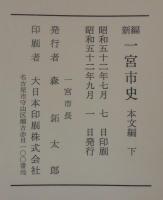 新編 一宮市史 本文編 下
昭和五十二年七月 七日印刷
昭和五十二年九月 一日発行
一宮市長
発行者 森鉐太郎
印刷者 大日本印刷株式会社
名古屋市守山区瀬古赤目一〇〇番地